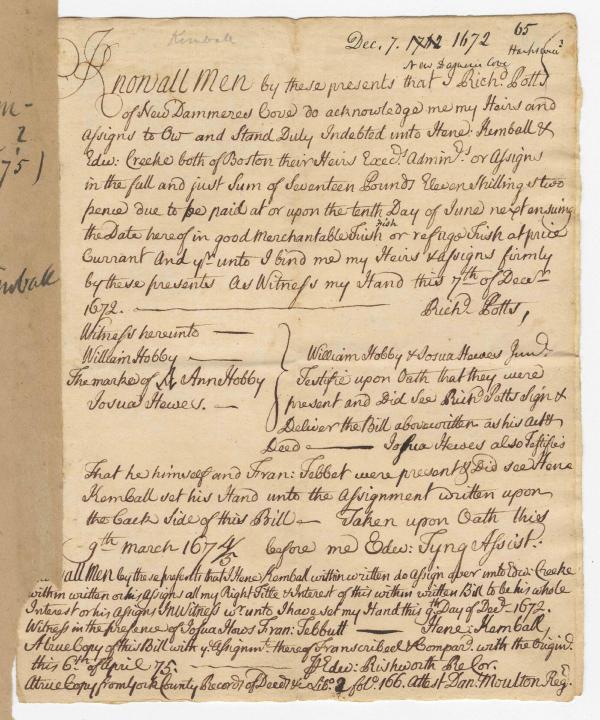 Kemball
Dec. 7. 1712 1672
65
New Damerin Cove
Know all Men by these presents that I Rich:d Potts
of New Dammeres Cove do acknowledge me my Heirs and
Assigns to Ow and Stand Duly Indebted unto Hene: Kemball &
Edw: Creeke both of Boston their Heirs Exec:rs Admin:rs or Assigns
in the full and just Sum of Seventeen Pounds Eleven Shillings two
pence due to be paid at or upon the tenth Day of June next ensuing
the Date hereof in good Merchantable Fish or refuge Fish at price
Currant And yr unto I bind me my Heirs & assigns firmly
by these presents As Witness my Hand this 7th of Decemr
1672. Rich:d Potts,
Witness hereunto
William Hobby
The marke of Ann Hobby
Josua Hewes.
William Hobby & Josua Hewes Jun:r
Testifie upon Oath that they were
present and Did See Rich:d Potts Sign &
Deliver the Bill abovewritten as his Act &
Deed Joshua Hewes also Testifies
That he himself and Fran: Tebbet were present & Did see Hene
Kemball set his Hand unto the Assignment written upon
the back Side of this Bill Taken upon Oath this
9th march 1674/5 before me Edw: Tyng Assist:
Know all Men by these present that I Hene Kemball within written do Assign over unto Edw: Creeke
within written or his Assigns all my Right Title & Interest of this within written Bill to be his whole
Interest or his Assigns In Witness wr unto I have set my Hand this 7th Day of Decr 1672.
Witness in the presence of Josua Hews Fran: Tebbutt Hene: Kemball
A true Copy of this Bill with ye Assignmt thereof Transcribed & Compard with the Origin:l
this 6th of April 75. p Edw: Rishworth Re:Cor:
A true Copy from York County Records of Deeds &c Lib:o 2 fol:o 166. Attest Dan: Moulton Reg:r
2
75)
mball